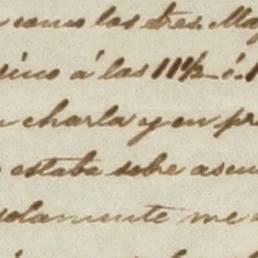 como los tres. Ma
sino á las 11½ ó 1
charla y en pr
estaba sobre asun
solamente me